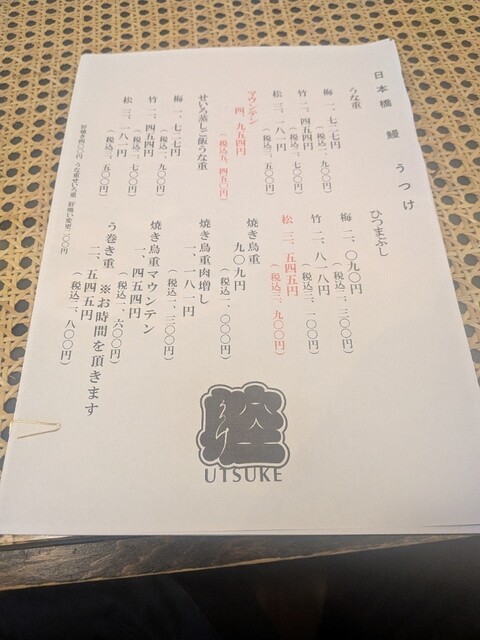 日本橋 鰻 うつけ
うな重
梅 一、七二七円
(税込一、九〇〇円)
竹 二、四五四円
(税込二、七〇〇円)
松 三、一八一円
(税込三、五〇〇円)
マウンテン
四、九五四円
(税込五、四五〇円)
せいろ蒸しご飯うな重
梅 一、七二七円
(税込一、九〇〇円)
竹 二、四五四円
(税込二、七〇〇円)
松 三、一八一円
(税込三、五〇〇円)
肝焼き四〇〇円 うな重せいろ重 肝吸い変更
ひつまぶし
梅 二、〇九〇円
(税込二、三〇〇円)
竹 二、八一八円
(税込三、一〇〇円)
松 三、五四五円
(税込三、九〇〇円)
焼き鳥重
九〇九円
(税込一、〇〇〇円)
焼き鳥重肉増し
一、一八一円
(税込一、三〇〇円)
焼き鳥重マウンテン
一、四五四円
(税込一、六〇〇円)
う巻き重 ※お時間を頂きます
二、五四五円
(税込二、八〇〇円)
UTSUKE